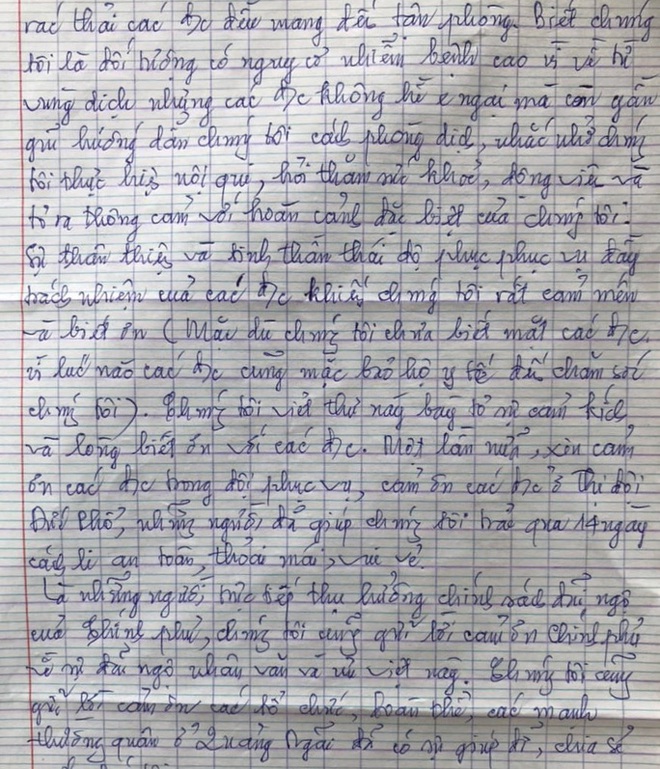 rác thải các đ/c đều mang đến tận phòng. Biết chúng
tôi là đối tượng có nguy cơ nhiễm bệnh cao vì về từ
vùng dịch nhưng các đ/c không hề e ngại mà còn gần
gũi hướng dẫn chúng tôi cách phòng dịch, nhắc nhở chúng
tôi thực hiện nội qui, hỏi thăm sức khoẻ, động viên và
tỏ ra thông cảm với hoàn cảnh đặc biệt của chúng tôi.
Sự thân thiện và tinh thần thái độ phục phục vụ đầy
trách nhiệm của các đ/c khiến chúng tôi rất cảm mến
và biết ơn (Mặc dù chúng tôi chưa biết mặt các đ/c
vì lúc nào các đ/c cũng mặc bảo hộ y tế đến chăm sóc
chúng tôi). Chúng tôi viết thư này bày tỏ sự cảm kích
và lòng biết ơn với các đ/c. Một lần nữa, xin cảm
ơn các đ/c trong đội phục vụ, cảm ơn các đ/c ở Thị đội
Đức Phổ, những người đã giúp chúng tôi trải qua 14 ngày
cách li an toàn, thoải mái, vui vẻ.
Là những người trực tiếp thụ hưởng chính sách đãi ngộ
của Chính phủ, chúng tôi cũng gửi lời cảm ơn Chính phủ
về sự đãi ngộ nhân văn và ưu việt này. Chúng tôi cũng
gửi lời cảm ơn các tổ chức, đoàn thể, các mạnh
thường quân ở Quảng Ngãi đã có sự giúp đỡ, chia sẻ